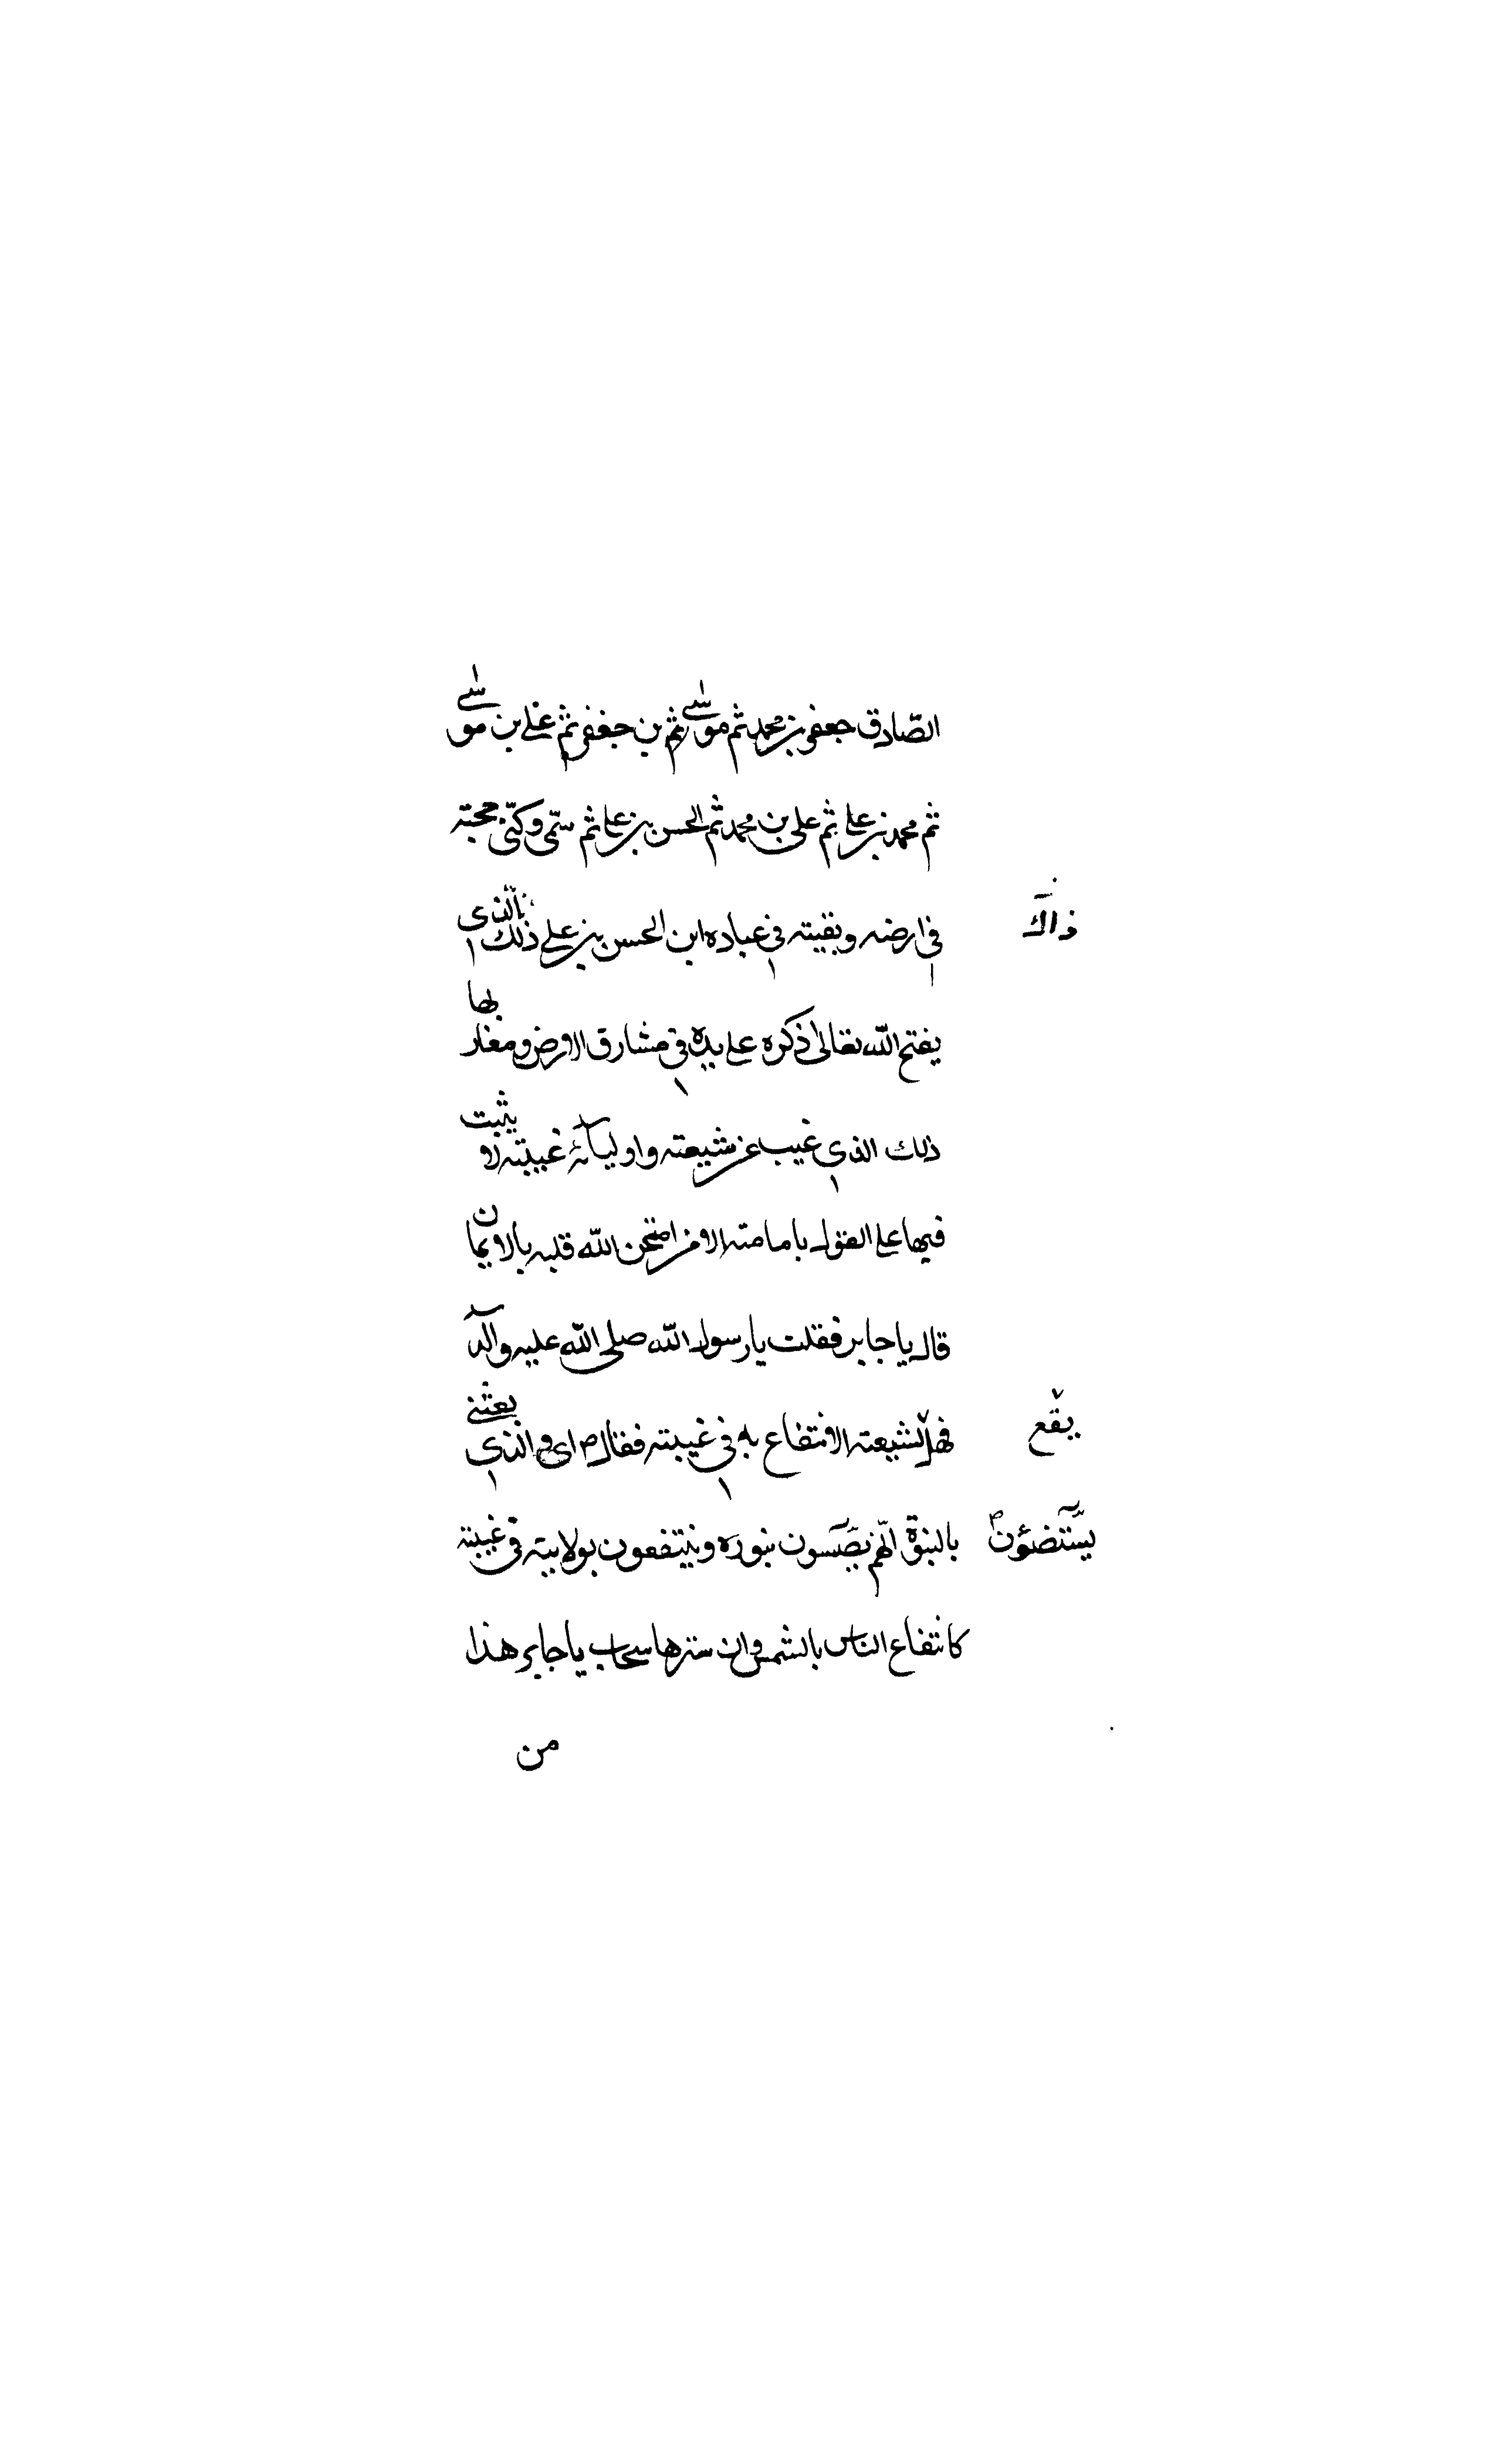 الصّادق جعفر بن محمد ثم موسٰى ثم بن جعفر ثم علي بن موسٰى
ثم محمد بن علي ثم علي بن محمد ثم الحسن بن علي ثم سمّي وكنّي حجته
في ارضه وبقيته في عباده ابن الحسن بن علي ذلك الذى
ذاك
يفتح الله تعالى ذكره على يده في مشارق الارض ومغاربها
ذلك الذي غيب عن شيعته واوليآئه غيبته لا يثبت
فيها على القول بامامته الا من امتحن الله قلبه بالايمان
قال يا جابر فقلت يا رسول الله صلى الله عليه وآله
فهل لشيعته الانتفاع به في غيبته فقال ص اى والذي بعثني
يقع
بالنبوة انهم يستضيئون بنوره وينتفعون بولايته في غيبته
يستضؤن
كانتفاع الناس بالشمس وان سترها سحاب يا جابر هذا
من